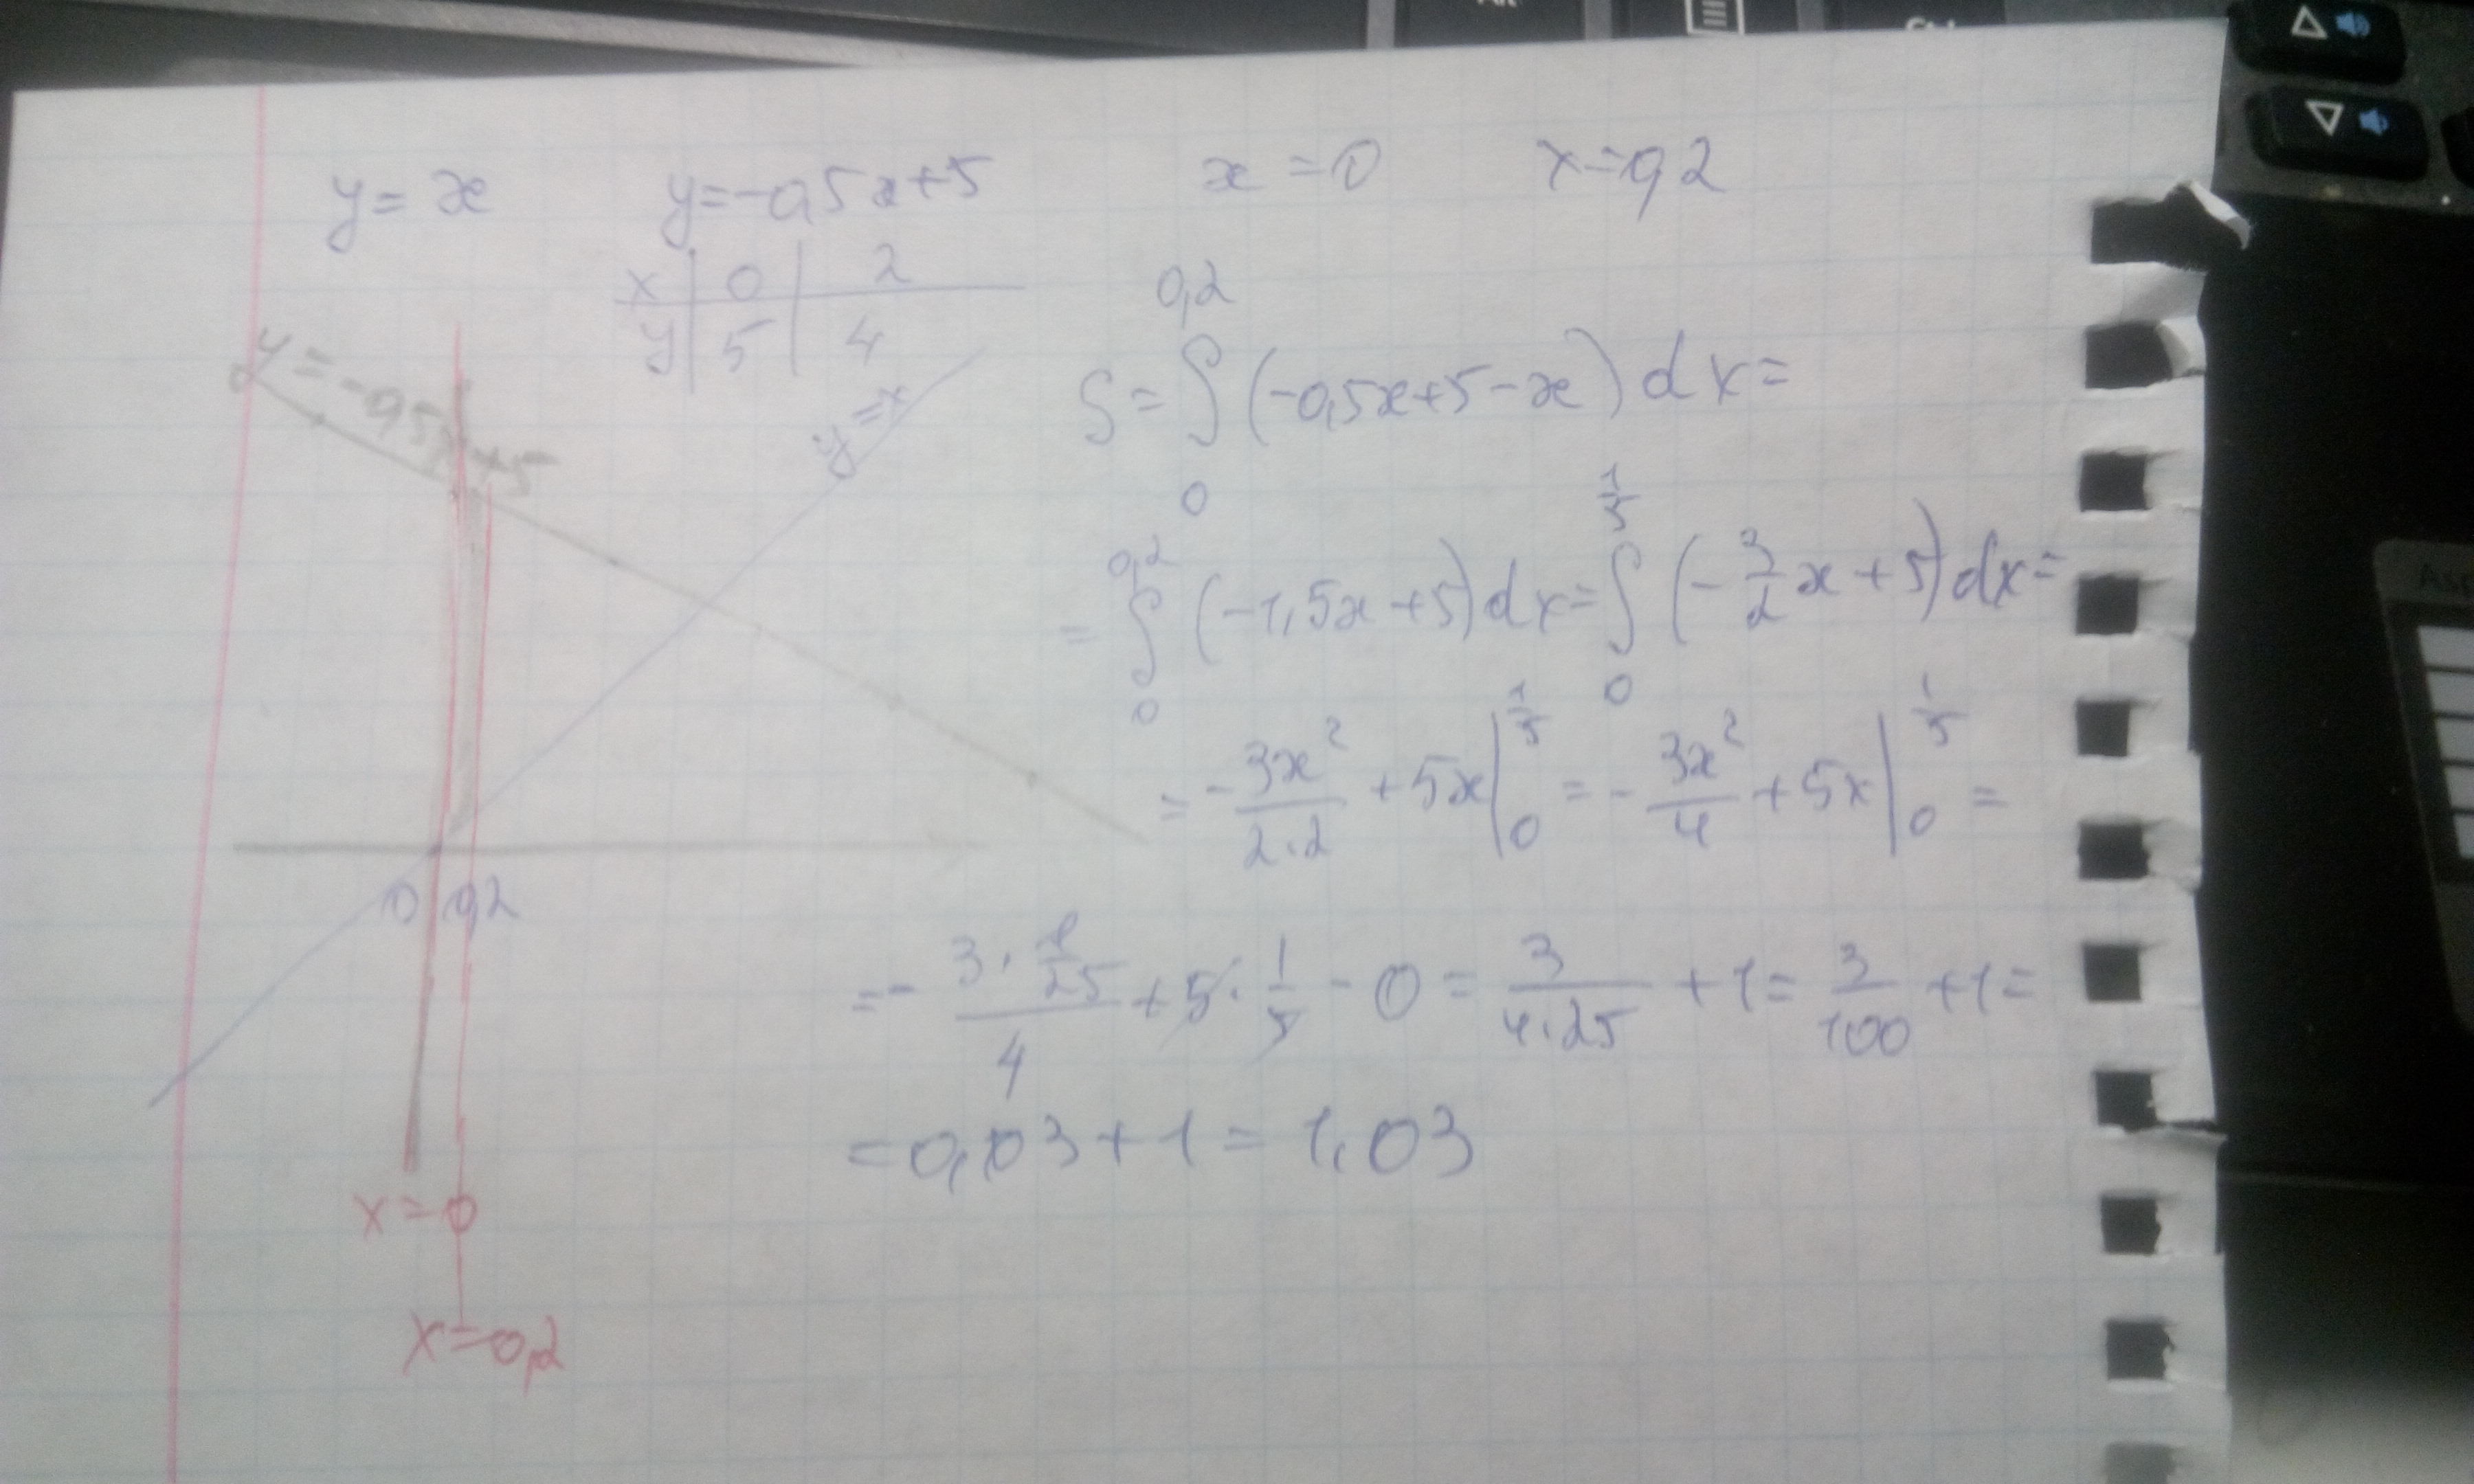 y = x   y = -0,5x+5   x = 0   x = 0,2
x | 0 | 2
y | 5 | 4
y = -0,5x+5
y = x
0 0,2
x = 0
x = 0,2
S = ∫₀^0,2 (-0,5x+5-x) dx =
= ∫₀^0,2 (-1,5x+5) dx = ∫₀^1/5 (-3/2 x + 5) dx =
= - 3x²/2.2 + 5x |₀^1/5 = - 3x²/4 + 5x |₀^1/5 =
= - (3 · 1/25)/4 + 5 · 1/5 - 0 = 3/4.25 + 1 = 3/100 + 1 =
= 0,03 + 1 = 1,03
Alt
Ctrl